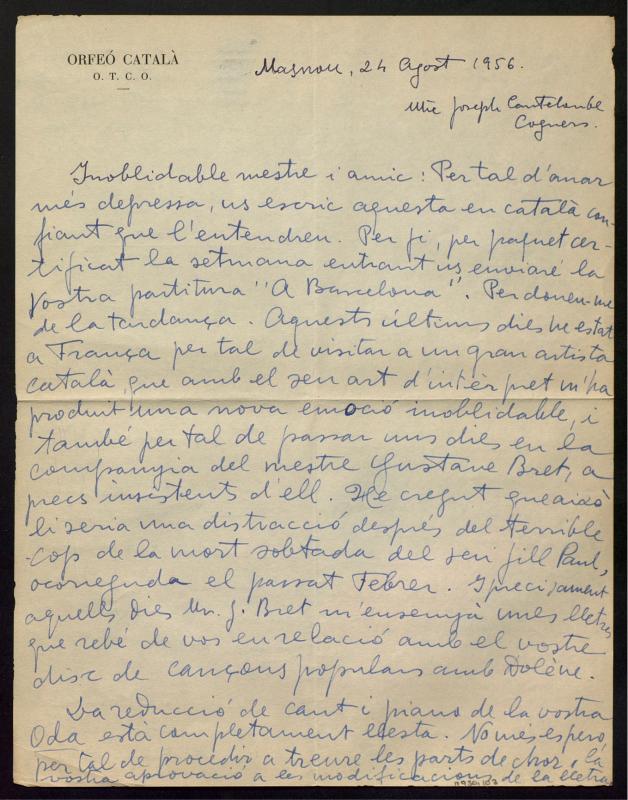 ORFEÓ CATALÀ
O. T. C. O.
Masnou, 24 Agost 1956.
Mr. Joseph Canteloube
Cogners.
Inoblidable mestre i amic: Per tal d'anar
més depressa, us escric aquesta en català con-
fiant que l'entendreu. Per fi, per paquet cer-
tificat la setmana entrant us enviaré la
vostra partitura "A Barcelona". Perdoneu-me
de la tardança. Aquests últims dies he estat
a França per tal de visitar a un gran artista
català, que amb el seu art d'intèrpret m'ha
produït una nova emoció inoblidable, i
també per tal de passar uns dies en la
companyia del mestre Gustave Bret, a
precs insistents d'ell. He cregut que això
li seria una distracció després del terrible
cop de la mort sobtada del seu fill Paul,
ocorreguda el passat Febrer. I precisament
aquells dies Mr. G. Bret m'ensenyà unes lletres
que rebé de vos en relació amb el vostre
disc de cançons populars amb Dolène.
La reducció de cant i piano de la vostra
Oda està completament llesta. Només espero,
per tal de procedir a treure les parts de chor, la
vostra aprovació a les modificacions de la lletra